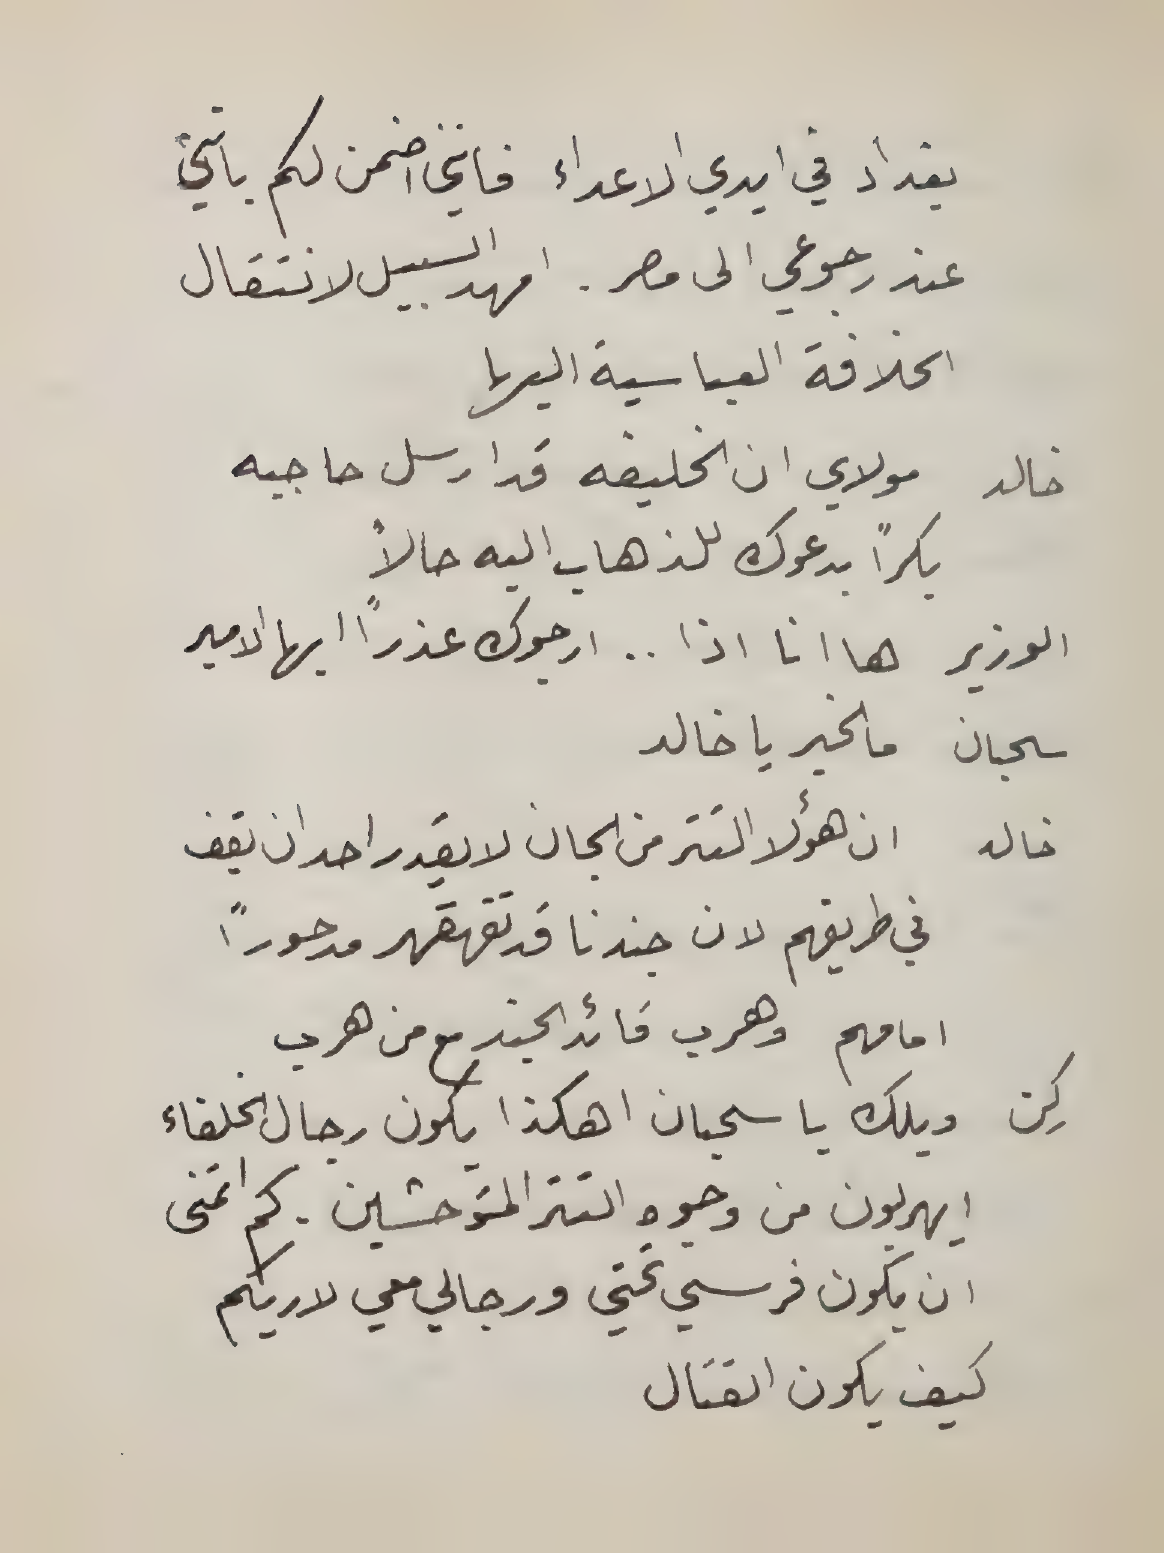 بغداد في ايدي الاعداء فانني اضمن لكم بانني
عند رجوعي الى مصر . امهد السبيل لانتقال
الخلافة العباسية اليها
خالد مولاي ان الخليفه قد ارسل حاجبه
بكرًا يدعوك للذهاب اليه حالاً
الوزير ها انا اذا .. ارجوك عذرًا ايها الامير
سحبان مالخبر يا خالد
خالد ان هؤلا التتر من الجان لا يقدر احد ان يقف
في طريقهم لان جندنا قد تقهقهر مدحورًا
امامهم وهرب قائد الجند مع من هرب
ركن ويلك يا سحبان اهكذا يكون رجال الخلفاء
ايهربون من وجوه التتر المتوحشين . كم اتمنى
ان يكون فرسي تحتي ورجالي معي لاريكم
كيف يكون القتال